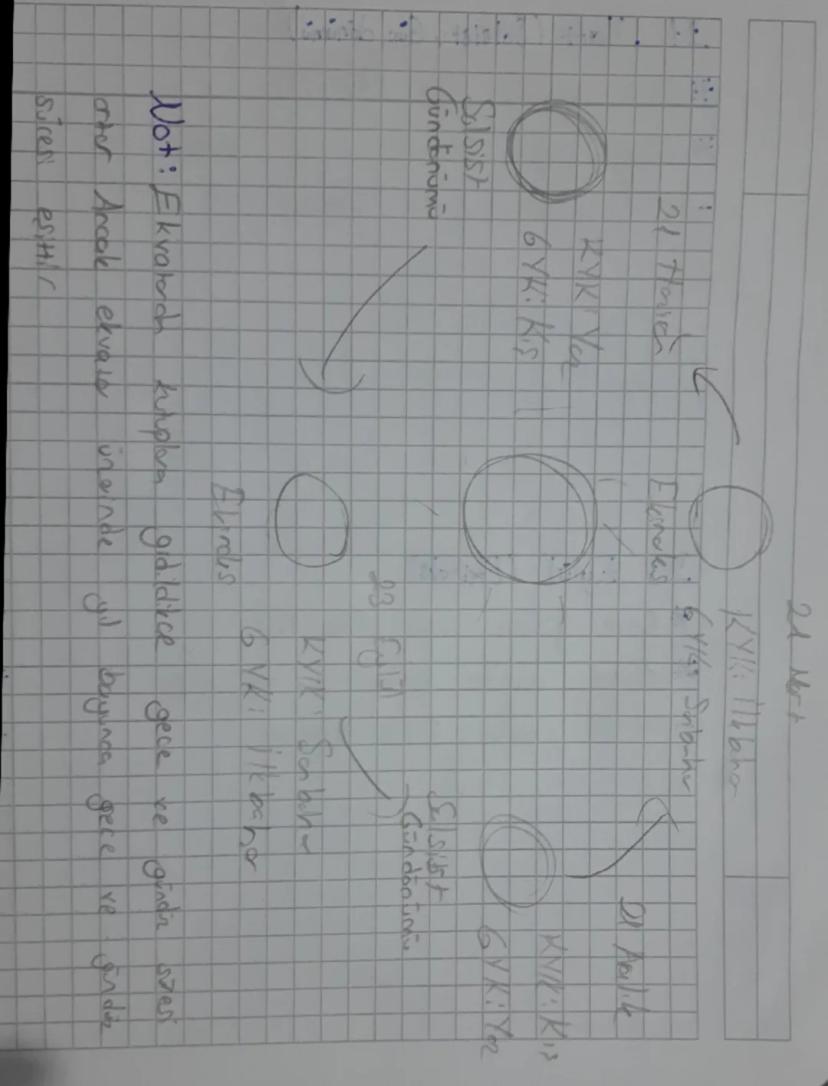 21 Mart
KYK: İlkbahar
GYK: Sonbahar
Ekinoks
21 Haziran
KYK: Yaz
GYK: Kış
Solsist
Gündönümü
21 Aralık
KYK: Kış
GYK: Yaz
Solsist
Gündönümü
23 Eylül
KYK: Sonbahar
GYK: İlkbahar
Ekinoks
Not: Ekvatordan kutuplara gidildikce gece ve gündüz süresi
artar Ancak ekvator üzerinde yıl boyunca gece ve gündüz
süresi eşittir